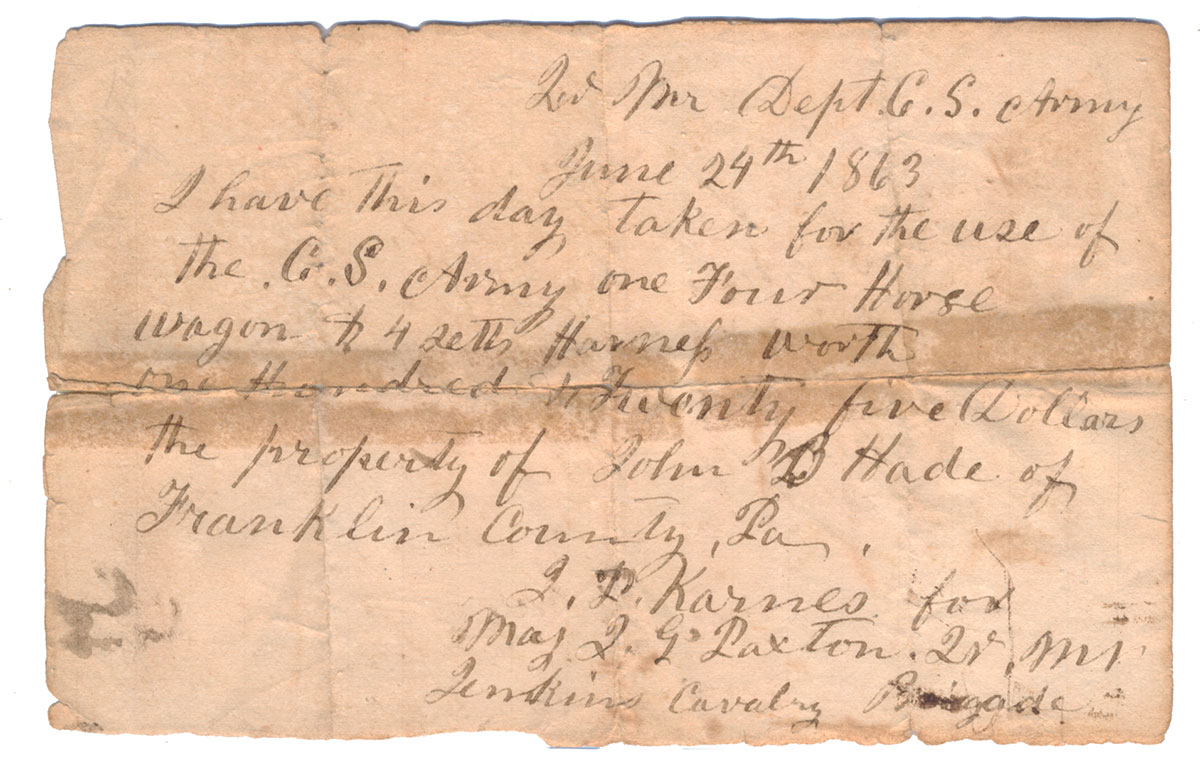 Qr Mr Dept. C. S. Army
June 24th 1863
I have this day taken for the use of
the C. S. Army one Four Horse
wagon & 4 setts Harness worth
one Hundred & Twenty five Dollars
the property of John B Hade of
Franklin County, Pa.
J. P. Karnes for
Maj J. G. Paxton. Qr. Mr
Jenkins Cavalry Briggde